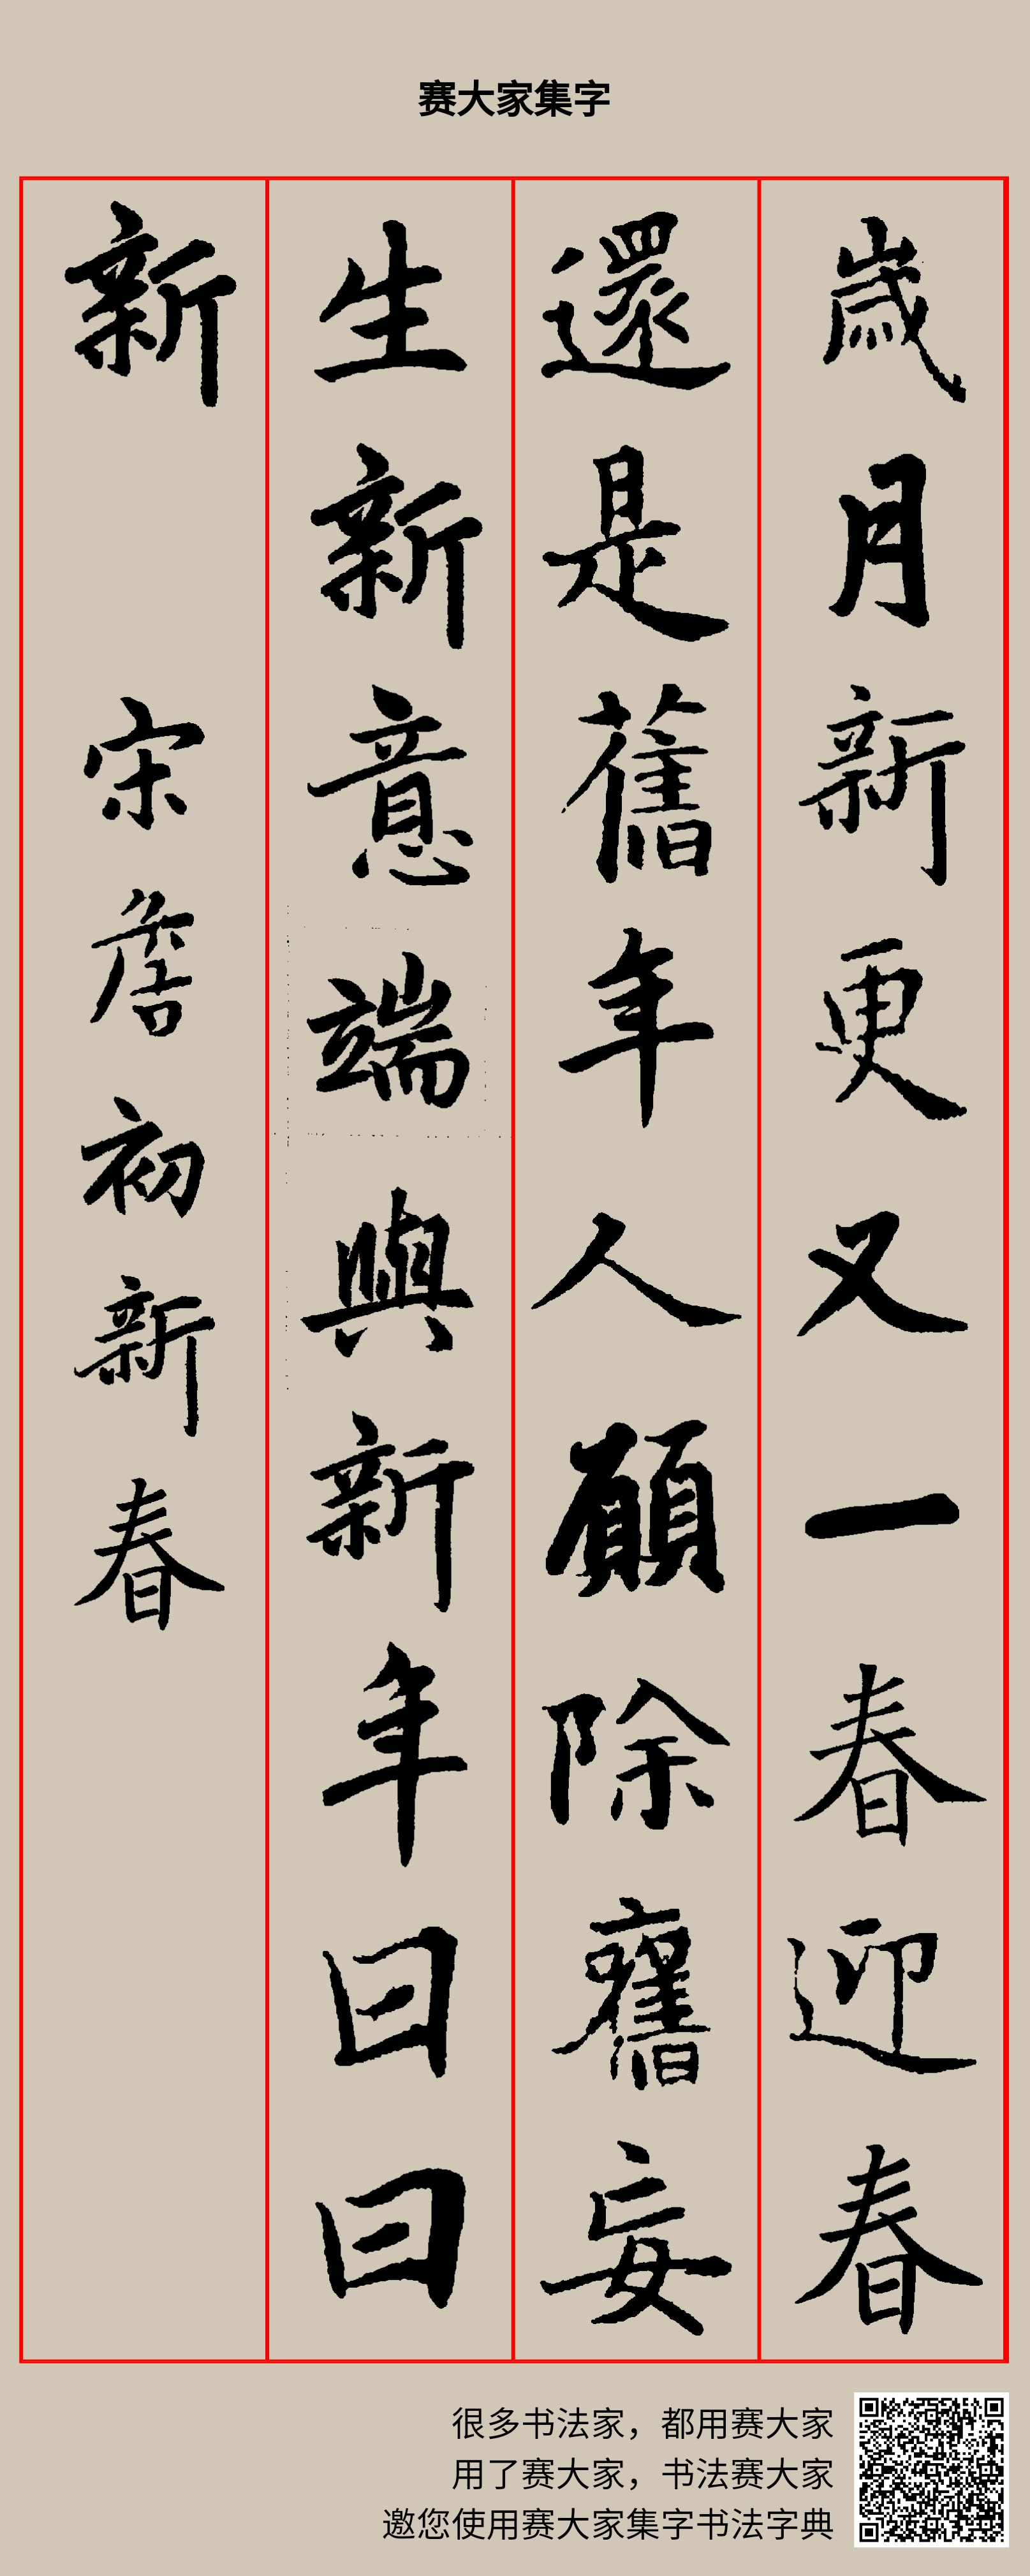 赛大家集字
歲月新更又一春迎春
還是舊年人願除舊妄
生新意端與新年曰曰
新
宋詹初新春
很多书法家，都用赛大家
用了赛大家，书法赛大家
邀您使用赛大家集字书法字典